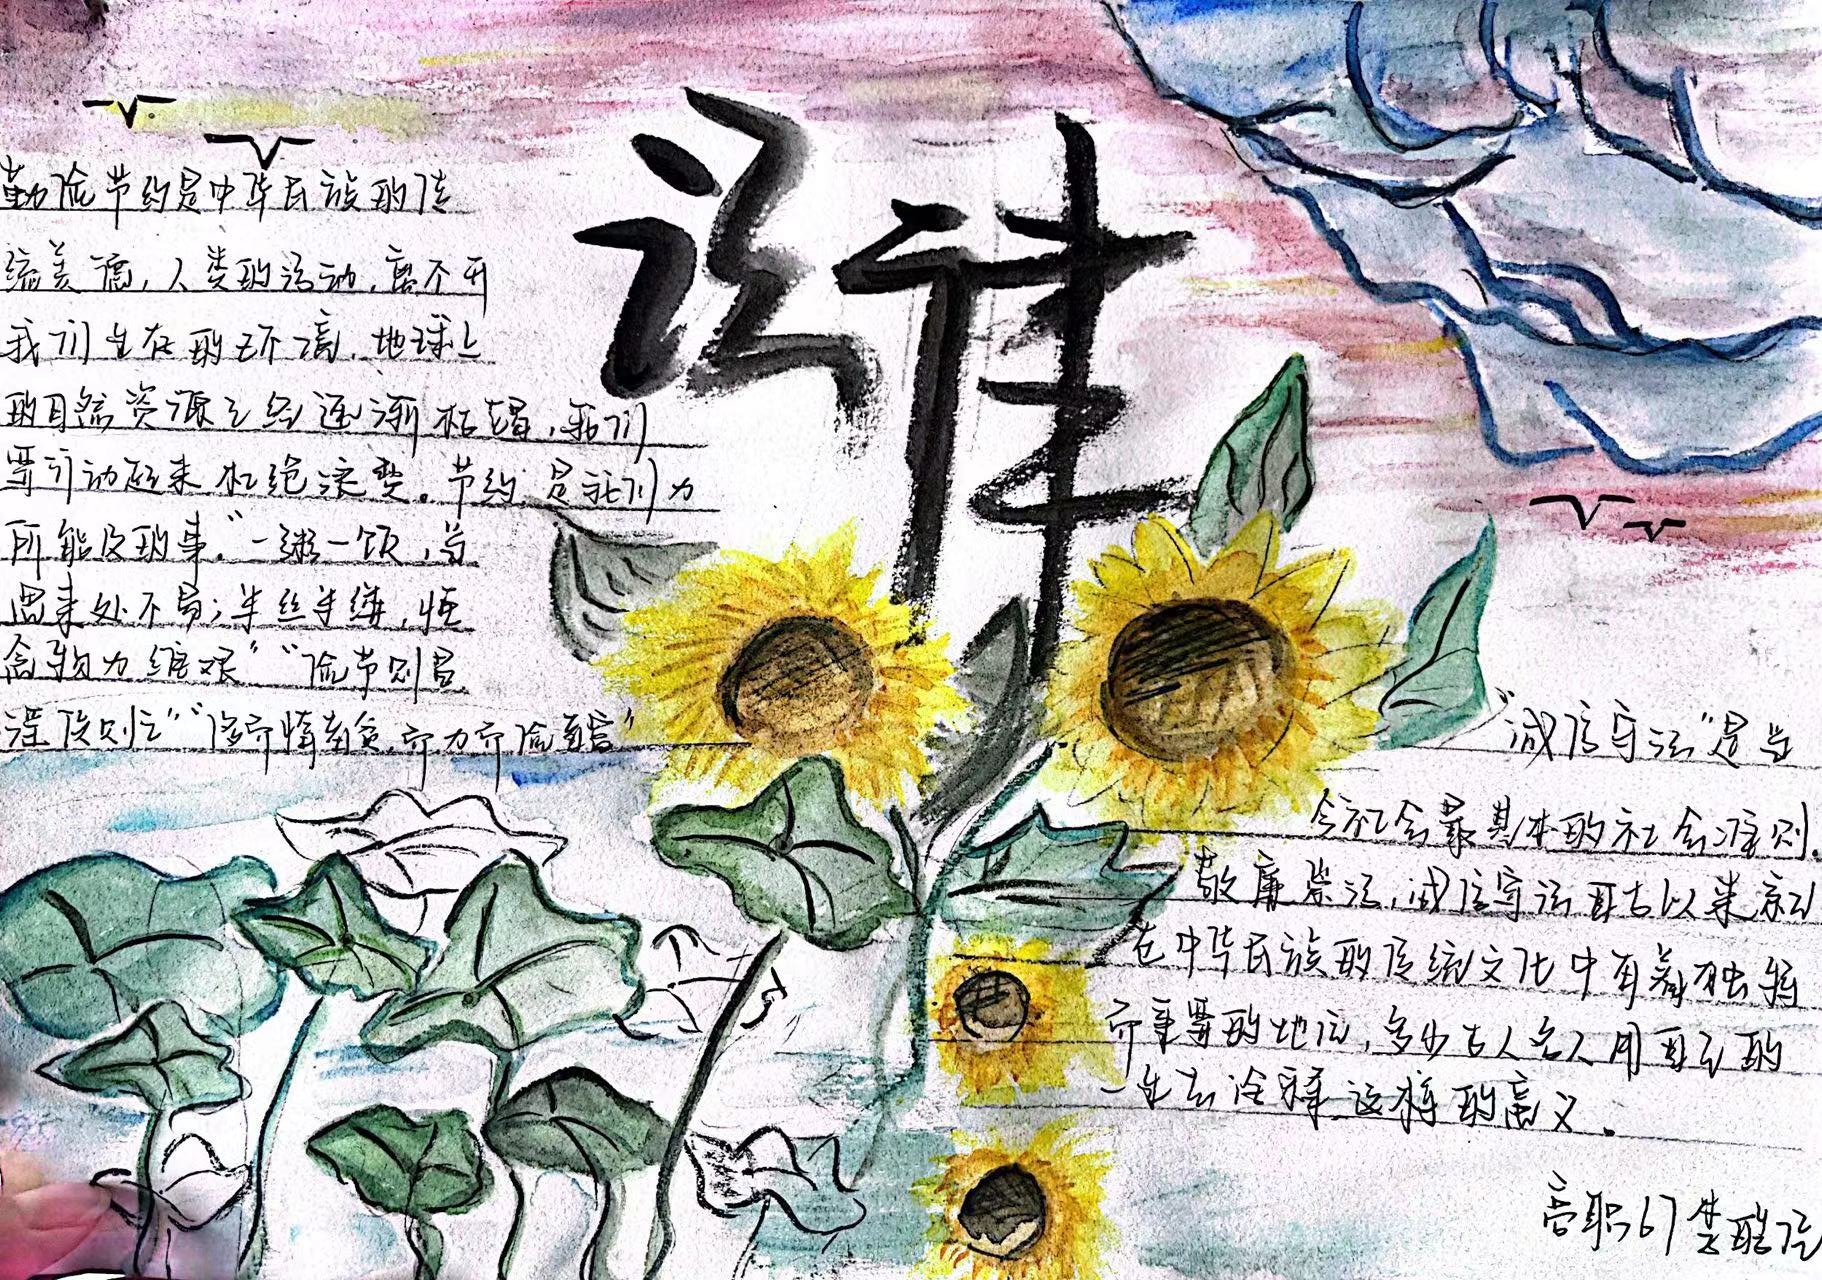 法律
勤俭节约是中华民族的传
统美德,人类的活动,离不开
我们生存的环境,地球上
的自然资源已经逐渐枯竭,我们
要行动起来杜绝浪费。节约是我们力
所能及的事。"一粥一饭,当
思来处不易;半丝半缕,恒
念物力维艰""俭节则昌
淫佚则亡""侈而惰者贫,而力而俭者富"
"诚信守法"是当
今社会最基本的社会准则。
敬廉崇法,诚信守法自古以来就
在中华民族的传统文化中有着独特
而重要的地位,多少古人名人用自己的
一生去诠释这样的意义。
高职67